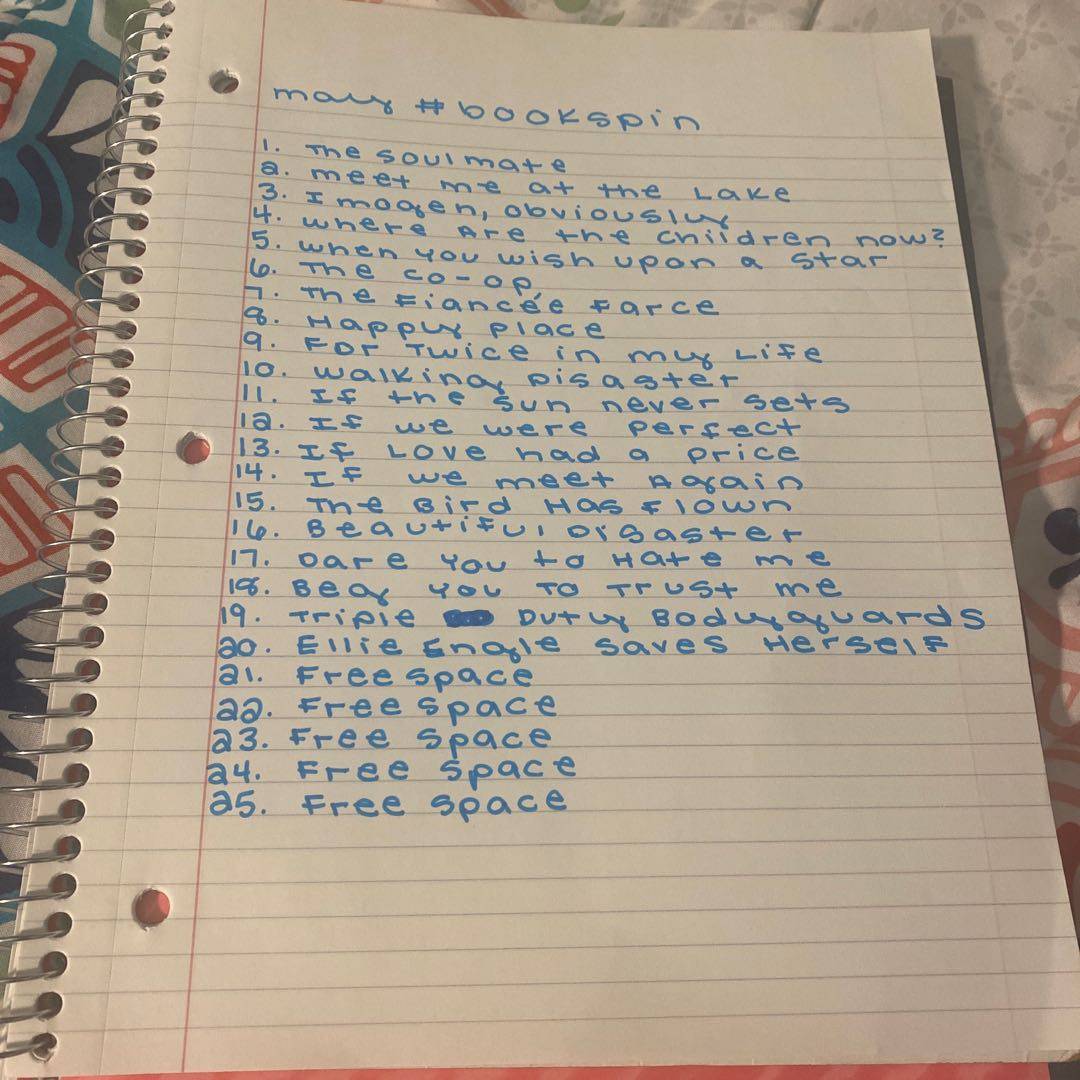 may #bookspin
1. The Soulmate
2. meet me at the Lake
3. Imogen, obviously
4. where Are the children now?
5. when you wish upon a star
6. The co-op
7. The Fiancée Farce
8. Happy Place
9. For Twice in my Life
10. Walking Disaster
11. If the sun never sets
12. If we were perfect
13. If Love had a price
14. If we meet Again
15. The Bird Has Flown
16. Beautiful Disaster
17. Dare you to Hate me
18. Beg you To Trust me
19. Triple Duty Bodyguards
20. Ellie Engle saves Herself
21. Free space
22. Free space
23. Free space
24. Free space
25. Free space